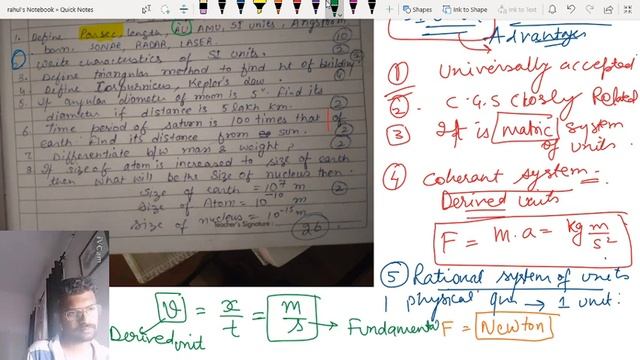 rahul's Notebook » Quick Notes
Ink to Shape
Ink to Text
1. Define Parsec, length, AU AMU, SI units, Angstrom
barn, SONAR, RADAR, LASER.
10
2. Write characteristics of SI units.
3. Define triangular method to find ht of building
4. Define Kepler's law.
4
5. If angular diameter of moon is 5". Find its
diameter if distance is 5 lakh km.
2
6. Time period of saturn is 100 times that of
earth. Find its distance from sun.
2
7. Differentiate b/w mass & weight?
2
8. If size of atom is increased to size of earth
then what will be the size of nucleus then
2
Size of earth = 10⁷ m
Size of Atom = 10⁻¹⁰ m
Size of nucleus = 10⁻¹⁵ m
Teacher's Signature
26
Advantages
1 Universally accepted
2. C.G.S Closly Related
3 It is matric system
of units.
4 coherant system.
Derived units
F = m.a = kg m/s²
5 Rational system of units
1 physical → 1 unit.
F = Newton
v = x/t = m/s → Fundamental
Derived unit